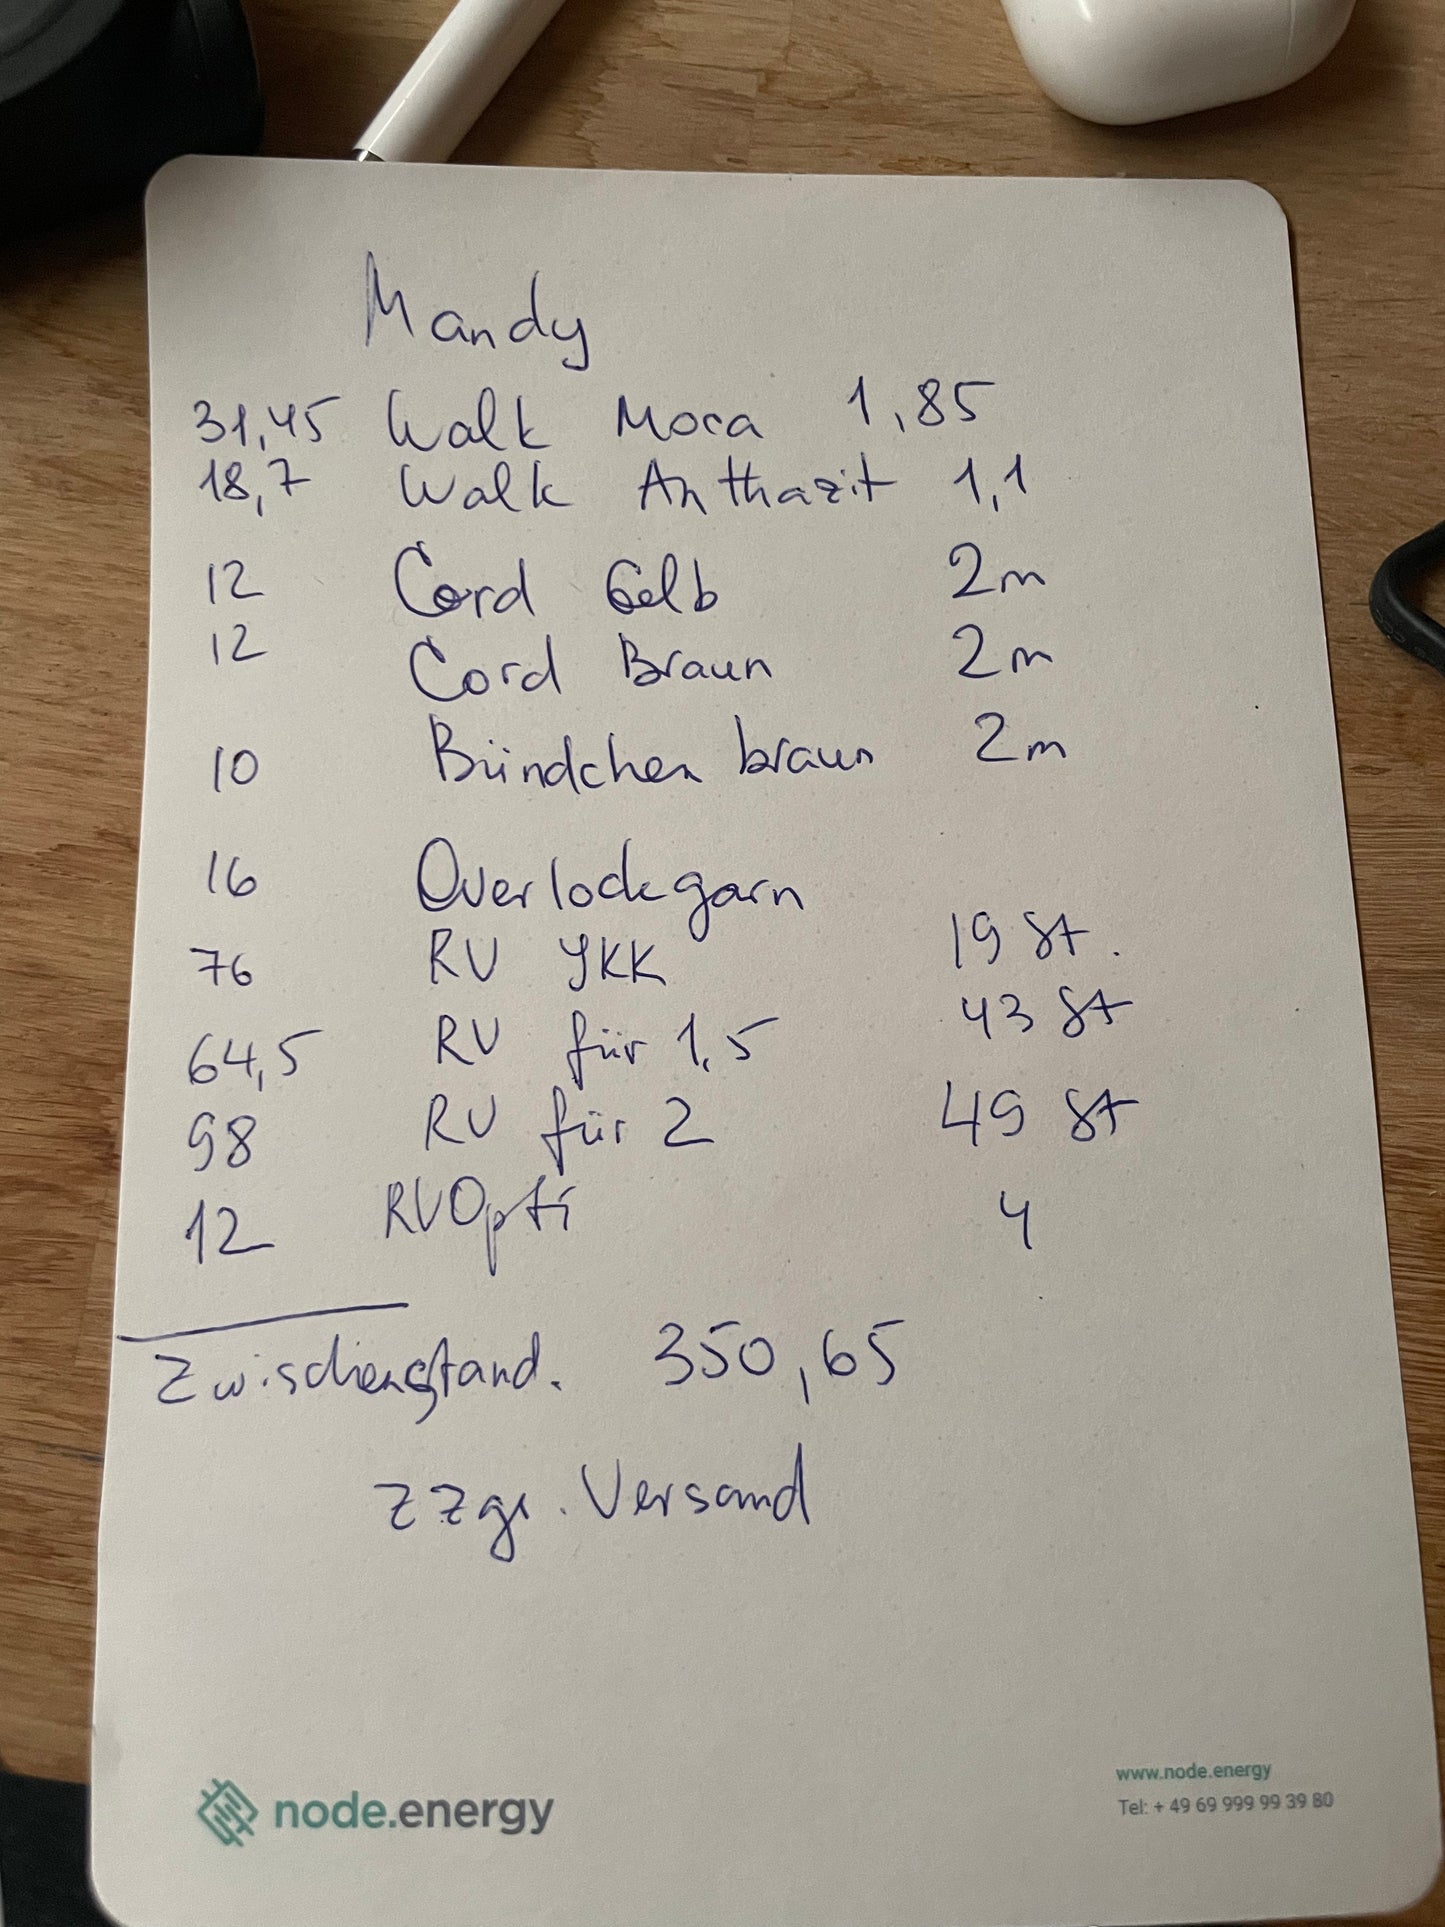 Mandy
31,45 Walk Moca 1,85
18,7 Walk Anthazit 1,1
12 Cord Gelb 2m
12 Cord Braun 2m
10 Bündchen braun 2m
16 Overlockgarn
76 RV YKK 19 St.
64,5 RV für 1,5 43 St
98 RV für 2 49 St
12 RV Opti 4
Zwischenstand. 350,65
zzgl. Versand
node.energy
www.node.energy
Tel: + 49 69 999 99 39 80